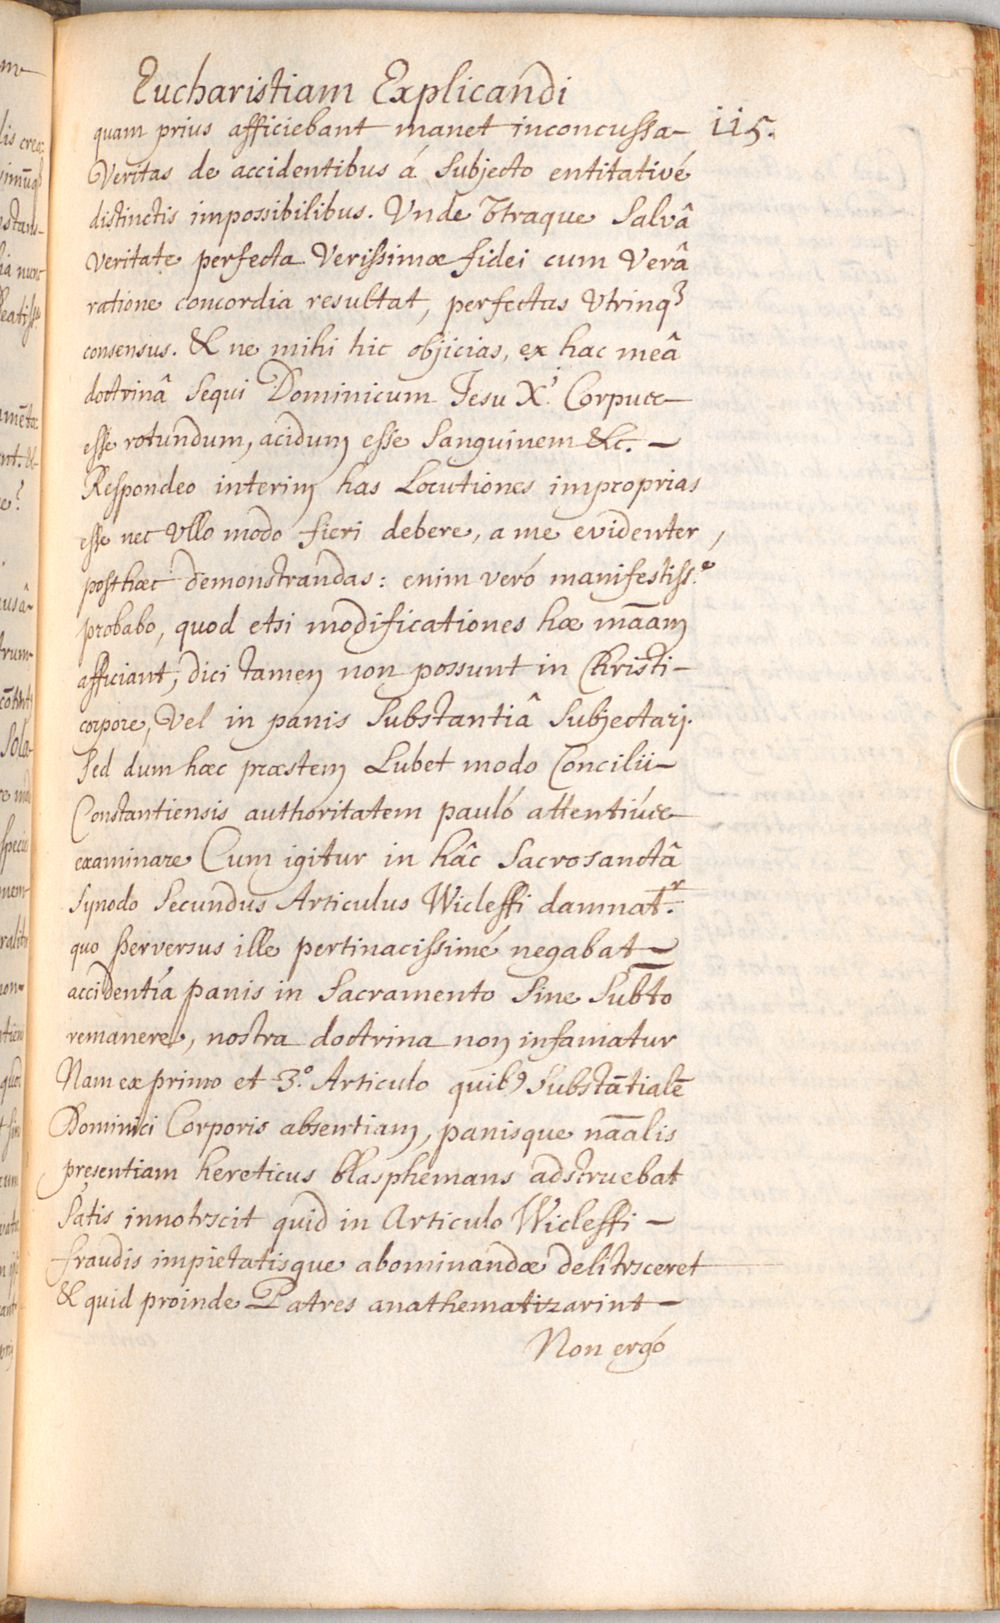 Eucharistiam Explicandi
quam prius afficiebant manet inconcussa 115.
Veritas de accidentibus á Subjecto entitativé
distinctis impossibilibus. Vnde Vtraque Salvâ
veritate perfecta Verissimæ fidei cum Verâ
ratione concordia resultat, perfectas Vtrinq3
consensus. & ne mihi hic objicias, ex hac meâ
doctrinâ Sequi Dominicum Jesu Xi. Corpus
esse rotundum, acidum esse Sanguinem &c. —
Respondeo interim has Locutiones improprias
esse nec Vllo modo fieri debere, a me evidenter,
posthæc demonstrandas: enim veró manifestiss.e
probabo, quod etsi modificationes hæ mãam
afficiant, dici tamen non possunt in Christi-
corpore, Vel in panis Substantiâ Subjectari.
Sed dum hæc præstem Lubet modo Concilii-
Constantiensis authoritatem pauló attentiús
examinare Cum igitur in hâc Sacrosanctâ
Synodo Secundus Articulus Wicleffi damnat.r
quo perversus ille pertinacissimé negabat —
accidentia panis in Sacramento Sine Subto
remanere, nostra doctrina non infamatur
Nam ex primo et 3.o Articulo quib9 Substãtialẽ
Dominici Corporis absentiam, panisque nãalis
presentiam hereticus blasphemans adstruebat
Satis innotescit quid in Articulo Wicleffi —
fraudis impietatisque abominandæ delitesceret
& quid proinde Patres anathematizarint —
Non ergó